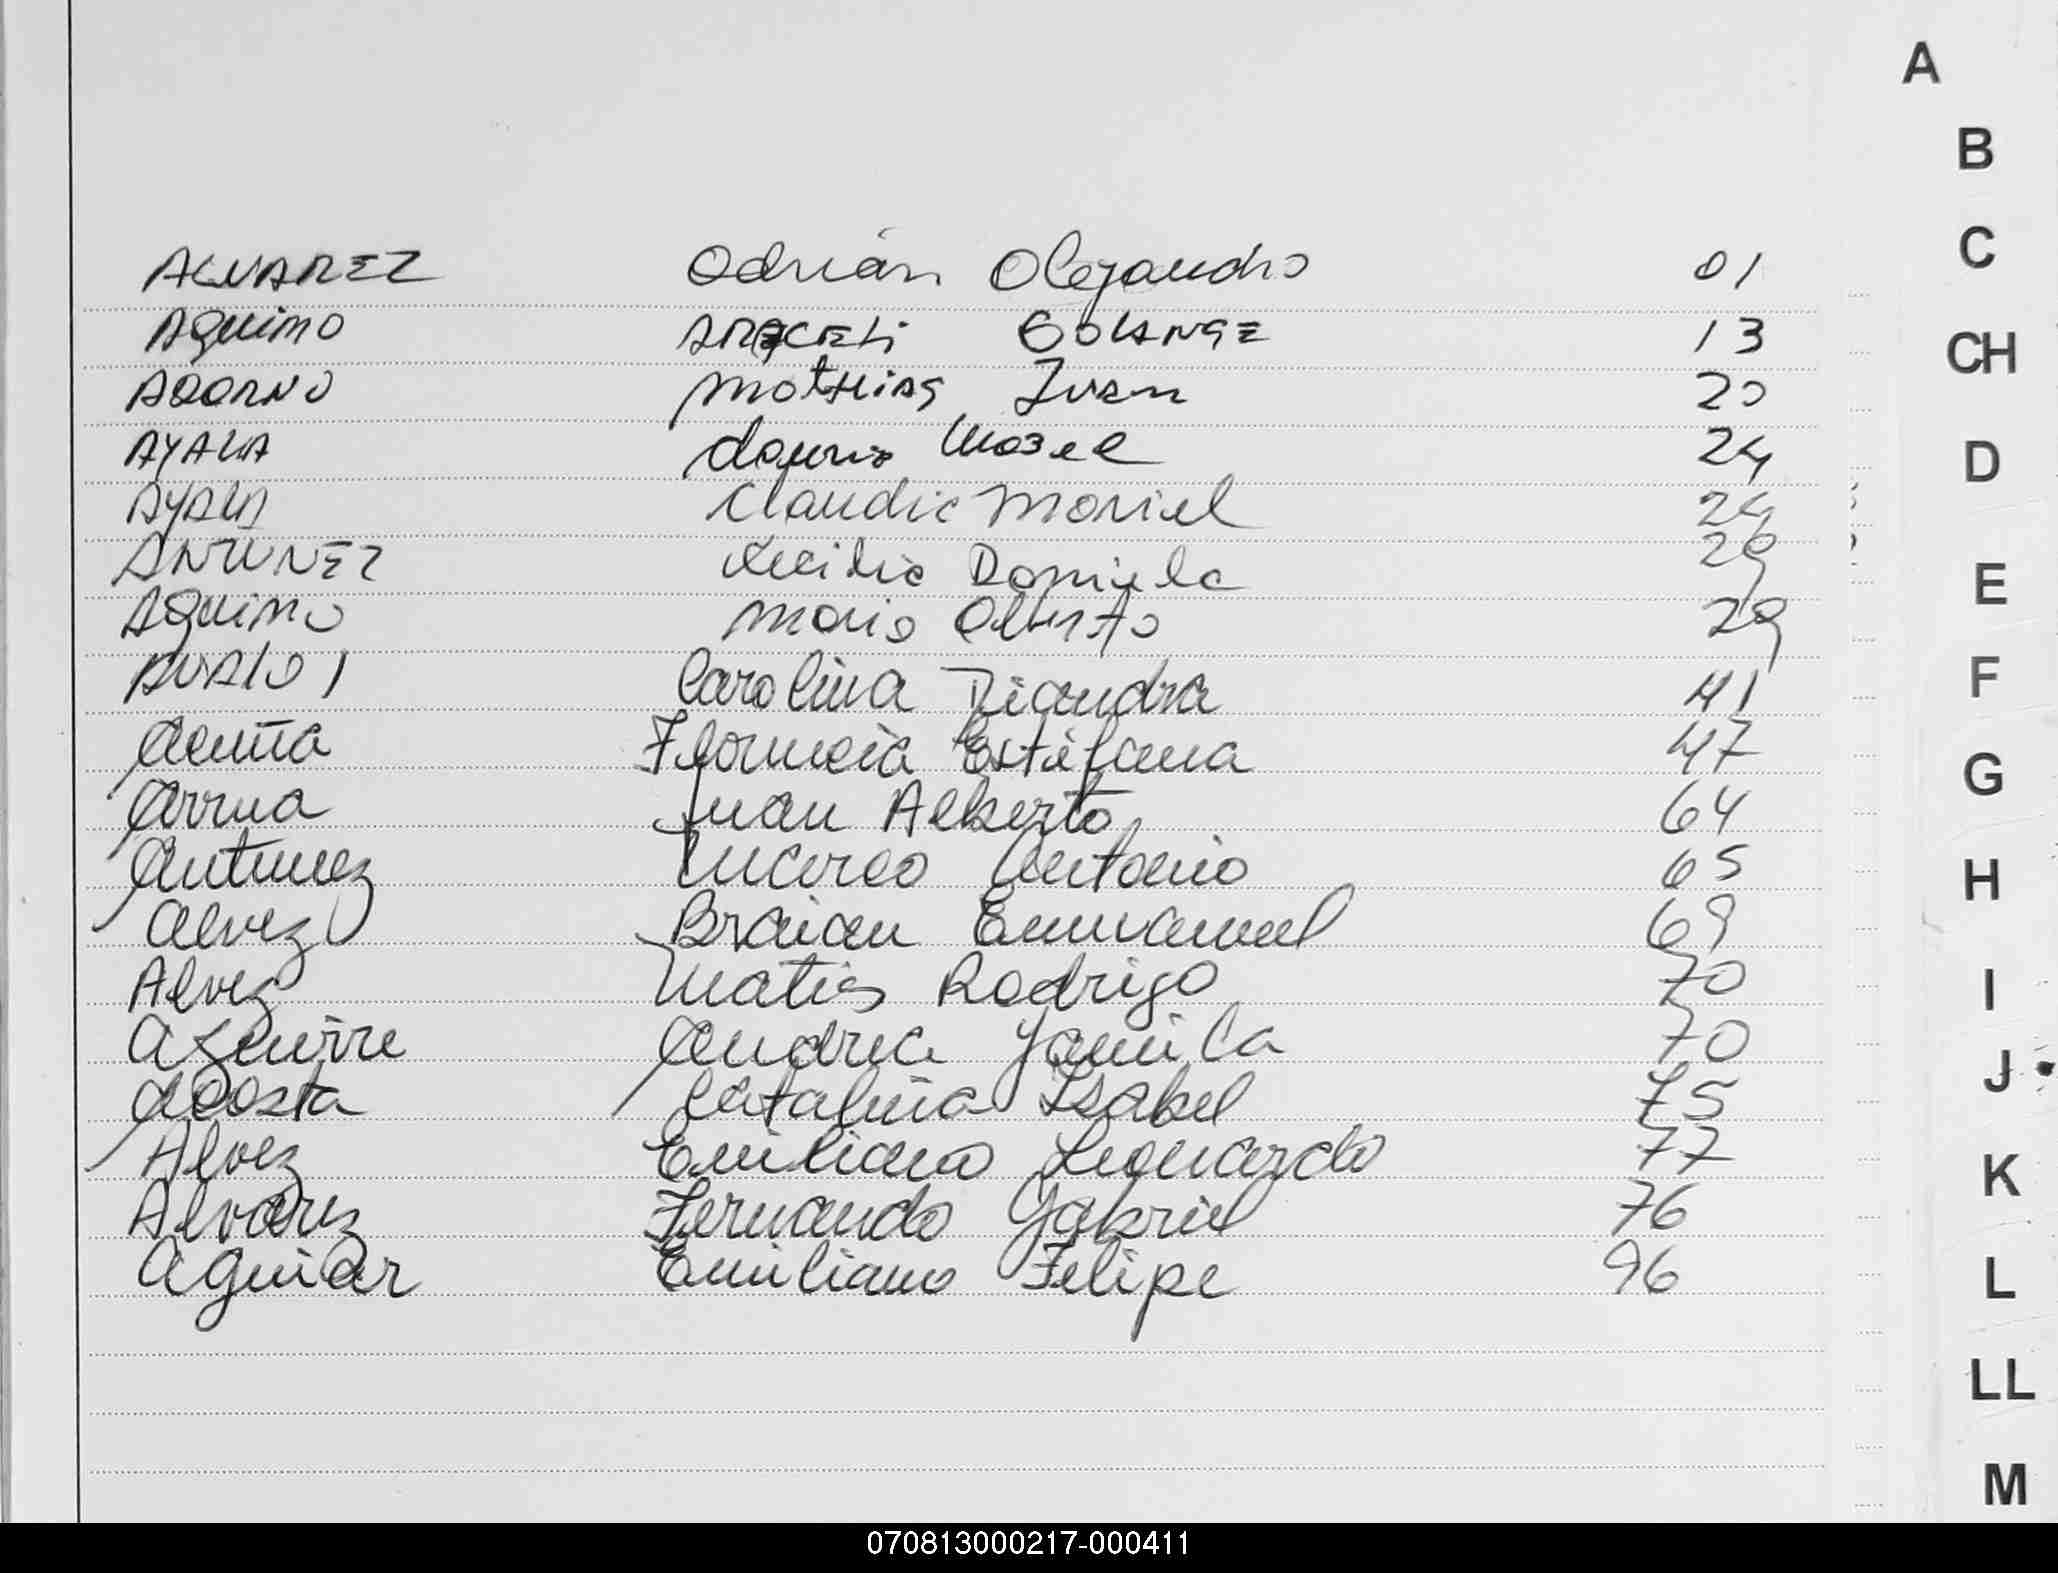 A
B
C
ALVAREZ Adrián Alejandro 01
AQuiNO ARACELi SOLANGE 13
CH
ADORNO MATHIAS Ivan 20
AYALA 24
D
AYALA Claudia Mariel 24
ANTUNEZ Cecilia Daniela 29
E
AQuiNO Mario Alberto 29
F
AVALOS Carolina 41
Acuña Florencia Estefania 47
G
Arrua Juan Alberto 64
Antunez Marcos Antonio 65
H
Alvez Braian Emmanuel 69
Alvez Matias Rodrigo 70
I
Aguirre Andrea Yamila 70
J
Acosta Catalina Isabel 75
Alvez Emiliano Leonardo 77
K
Alvarez Fernando Gabriel 76
Aguiar Emiliano Felipe 96
L
LL
M
070813000217-000411